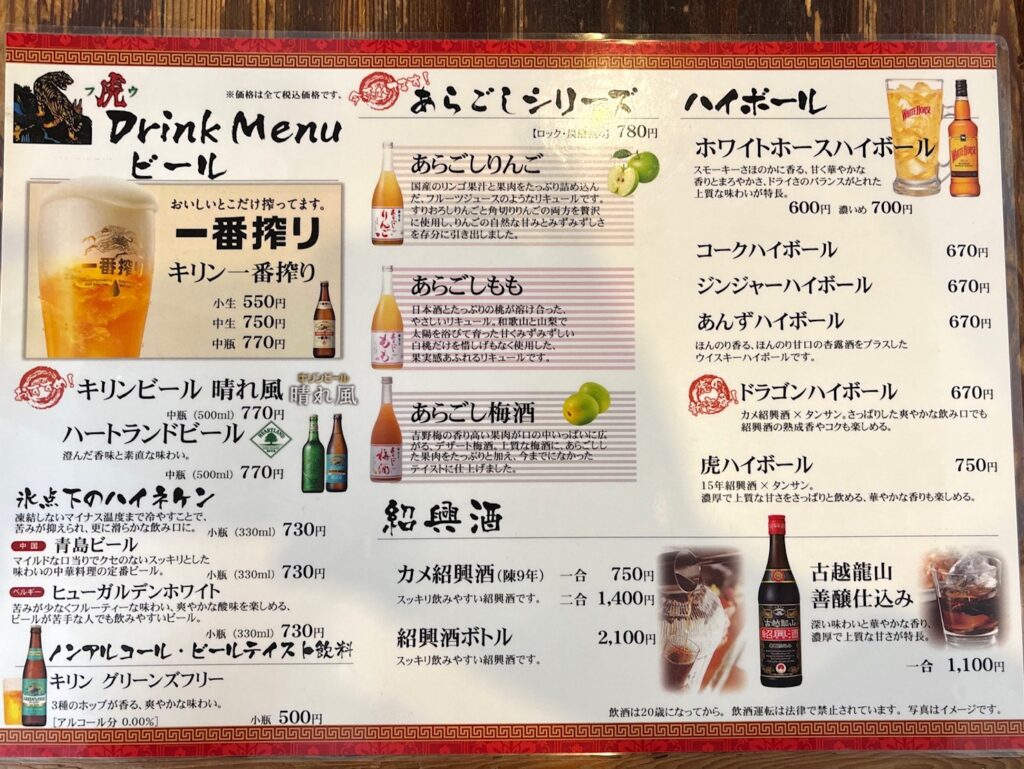 フウ
虎
※価格は全て税込価格です。
Drink Menu
ビール
おいしいとこだけ搾ってます。
一番搾り
キリン一番搾り
小生 550円
中生 750円
中瓶 770円
一番搾り
キリンビール 晴れ風
キリンビール
晴れ風
中瓶(500ml) 770円
ハートランドビール
HEARTLAND
BEER
澄んだ香味と素直な味わい。
中瓶(500ml) 770円
氷点下のハイネケン
凍結しないマイナス温度まで冷やすことで、
苦みが抑えられ、更に滑らかな飲み口に。 小瓶(330ml) 730円
中国 青島ビール
マイルドな口当りでクセのないスッキリとした
味わいの中華料理の定番ビール。 小瓶(330ml) 730円
ベルギー ヒューガルデンホワイト
苦みが少なくフルーティーな味わい、爽やかな酸味を楽しめる、
ビールが苦手な人でも飲みやすいビール。
小瓶(330ml) 730円
ノンアルコール・ビールテイスト飲料
キリン グリーンズフリー
3種のホップが香る、爽やかな味わい。
[アルコール分 0.00%] 小瓶 500円
です!
あらごしシリーズ
780円
あらごしりんご
国産のリンゴ果汁と果肉をたっぷり詰め込ん
だ、フルーツジュースのようなリキュールです。
すりおろしりんごと角切りりんごの両方を贅沢
に使用し、りんごの自然な甘みとみずみずしさ
を存分に引き出しました。
りんご
あらごしもも
日本酒とたっぷりの桃が溶け合った、
やさしいリキュール。和歌山と山梨で
太陽を浴びて育った甘くみずみずしい
白桃だけを惜しげもなく使用した、
果実感あふれるリキュールです。
もも
あらごし梅酒
吉野梅の香り高い果肉が口の中いっぱいに広
がる、デザート梅酒。上質な梅酒に、あらごしし
た果肉をたっぷりと加え、今までになかった
テイストに仕上げました。
梅酒
紹興酒
カメ紹興酒(陳9年) 一合 750円
スッキリ飲みやすい紹興酒です。 二合 1,400円
紹興酒ボトル 2,100円
スッキリ飲みやすい紹興酒です。
古越龍山
紹興酒
古越龍山
善醸仕込み
深い味わいと華やかな香り、
濃厚で上質な甘さが特長。
一合 1,100円
ハイボール
WHITE HORSE
WHITE HORSE
ホワイトホースハイボール
スモーキーさほのかに香る、甘く華やかな
香りとまろやかさ、ドライさのバランスがとれた
上質な味わいが特長。
600円 濃いめ 700円
コークハイボール 670円
ジンジャーハイボール 670円
あんずハイボール 670円
ほんのり香る、ほんのり甘口の杏露酒をプラスした
ウイスキーハイボールです。
ドラゴンハイボール 670円
カメ紹興酒×タンサン。さっぱりした爽やかな飲み口でも
紹興酒の熟成香やコクも楽しめる。
虎ハイボール 750円
15年紹興酒×タンサン。
濃厚で上質な甘さをさっぱりと飲める、華やかな香りも楽しめる。
飲酒は20歳になってから。 飲酒運転は法律で禁止されています。 写真はイメージです。